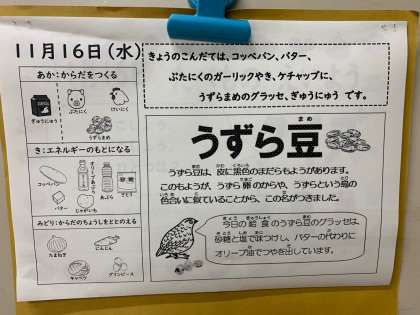 11月16日(水)
きょうのこんだては、コッペパン、バター、
ぶたにくのガーリックやき、ケチャップに、
うずらまめのグラッセ、ぎゅうにゅう です。
あか:からだをつくる
ぎゅうにゅう
ぶたにく
けいにく
うずらまめ
き:エネルギーのもとになる
コッペパン
オリーブあぶら
あぶら
さとう
バター
じゃがいも
みどり:からだのちょうしをととのえる
たまねぎ
にんじん
キャベツ
グリンピース
まめ
うずら豆
うずら豆は、皮に黒色のまだらもようがあります。
このもようが、うずら卵のからや、うずらという鳥の
色合いに似ていることから、この名がつきました。
今日の給食のうずら豆のグラッセは、
砂糖と塩で味つけし、バターの代わりに
オリーブ油でつやを出しています。